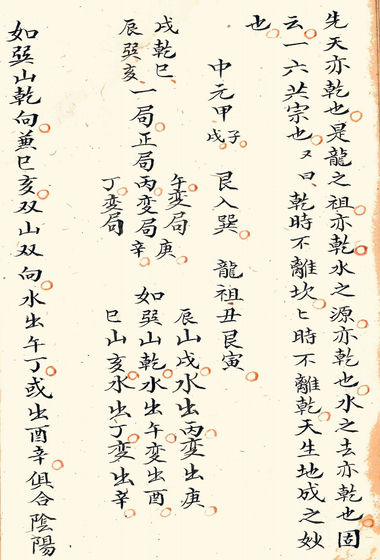 先天亦乾也是龍之祖亦乾水之源亦乾也水之去亦乾也固
云一六共宗也又曰乾時不離坎匕時不離乾天生地成之妙
也
中元甲子戌 艮入巽 龍祖丑艮寅
戌乾巳
辰巽亥
一局正局丙変局辛
午変局庚
丁変局
辰山戌水出丙変出庚
如巽山乾水出午変出酉
巳山亥水出丁変出辛
如巽山乾向兼巳亥双山双向水出午丁或出酉辛俱合陰陽